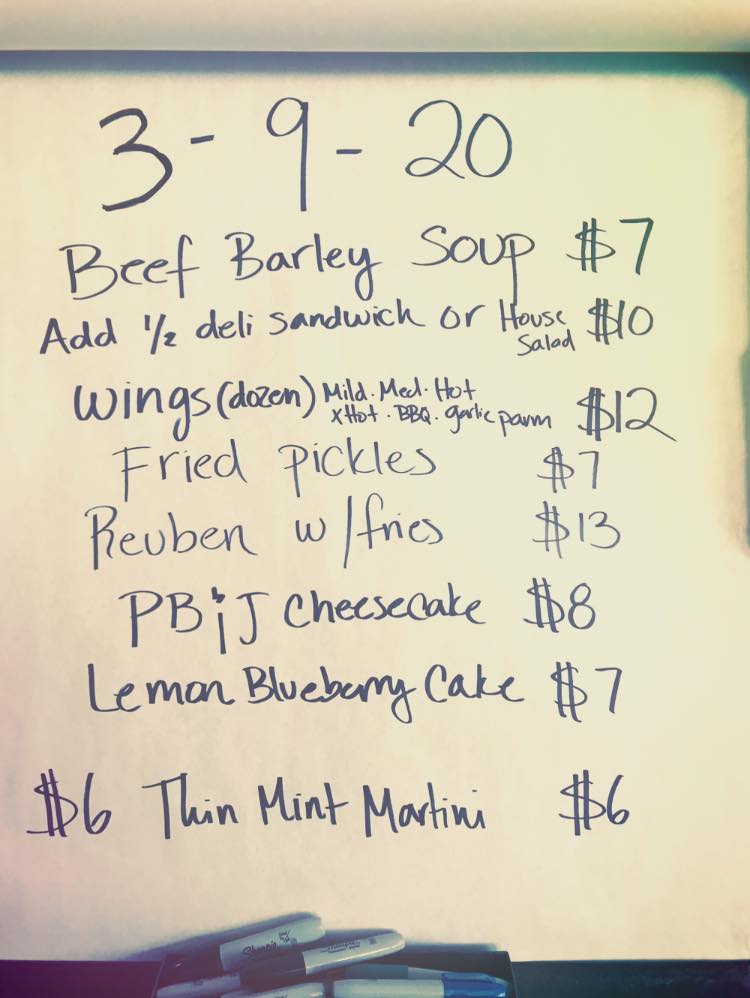 3-9-20
Beef Barley Soup $7
Add 1/2 deli sandwich or House Salad $10
Wings (dozen) Mild. Med. Hot
XHot. BBQ. garlic parm $12
Fried pickles $7
Reuben w/fries $13
PB¡J Cheesecake $8
Lemon Blueberry Cake $7
$6 Thin Mint Martini $6
Sharpie